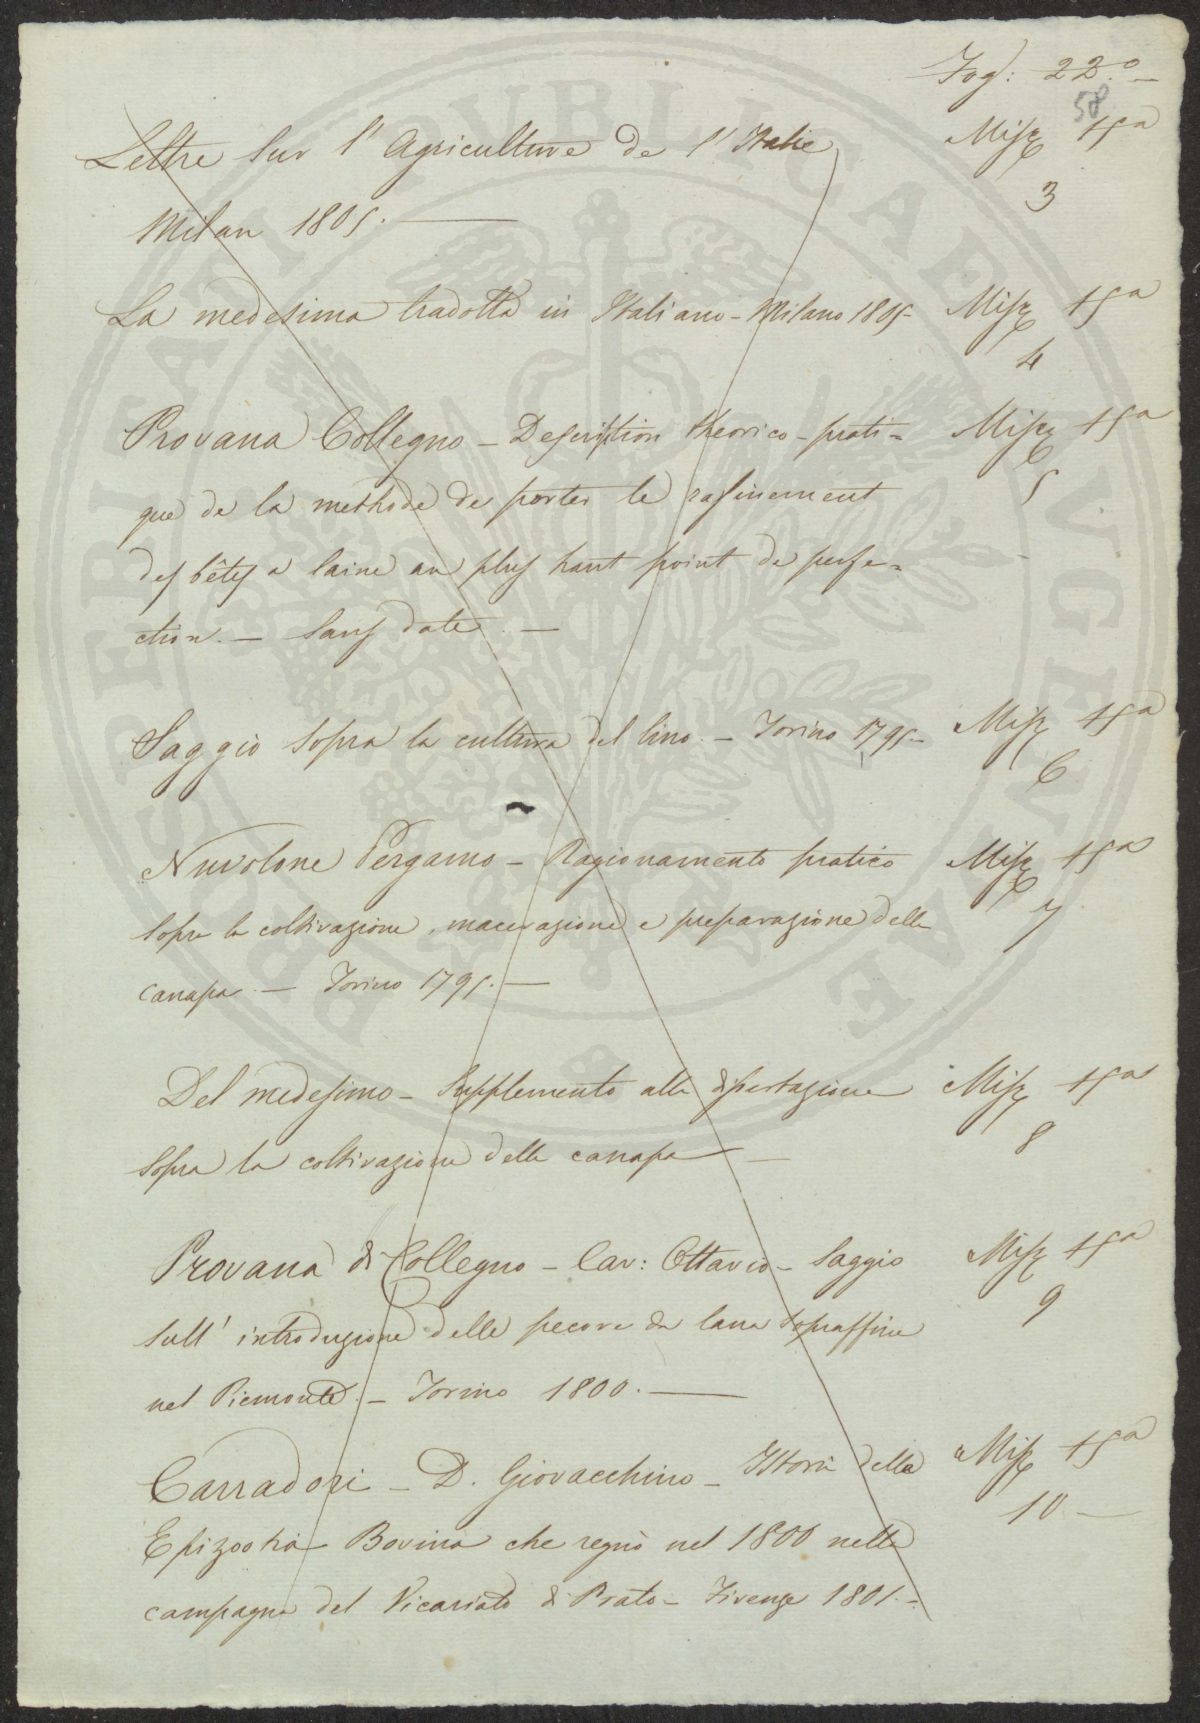 Fog: 22.o
58
Lettre sur l'Agriculture de l'Italie Misc 15a
Milan 1805. 3
La medesima tradotta in Italiano - Milano 1805 - Misc 15a
4
Provana Collegno - Description théorico-prati= Misc 15a
que de la methode de porter le rafinement 5
des bêtes a laine au plus haut point de perfe=
ction. - Sans date. -
Saggio sopra la cultura del lino. - Torino 1795 - Misc 15a
6
Nuvolone Pergamo - Ragionamento pratico Misc 15a
sopra la coltivazione, macerazione e preparazione della 7
canapa. - Torino 1795. -
Del medesimo - Supplemento alla dissertazione Misc 15a
sopra la coltivazione della canapa - 8
Provana di Collegno - Cav: Ottavio - Saggio Misc 15a
sull' introduzione delle pecore da lana sopraffina 9
nel Piemonte. - Torino 1800. -
Carradori - D. Giovacchino - Istoria della Misc 15a
Epizootia Bovina che regnò nel 1800 nella 10 -
campagna del Vicariato di Prato - Firenze 1801. -
PROSPERITATI PUBLICAE AUGENDAE